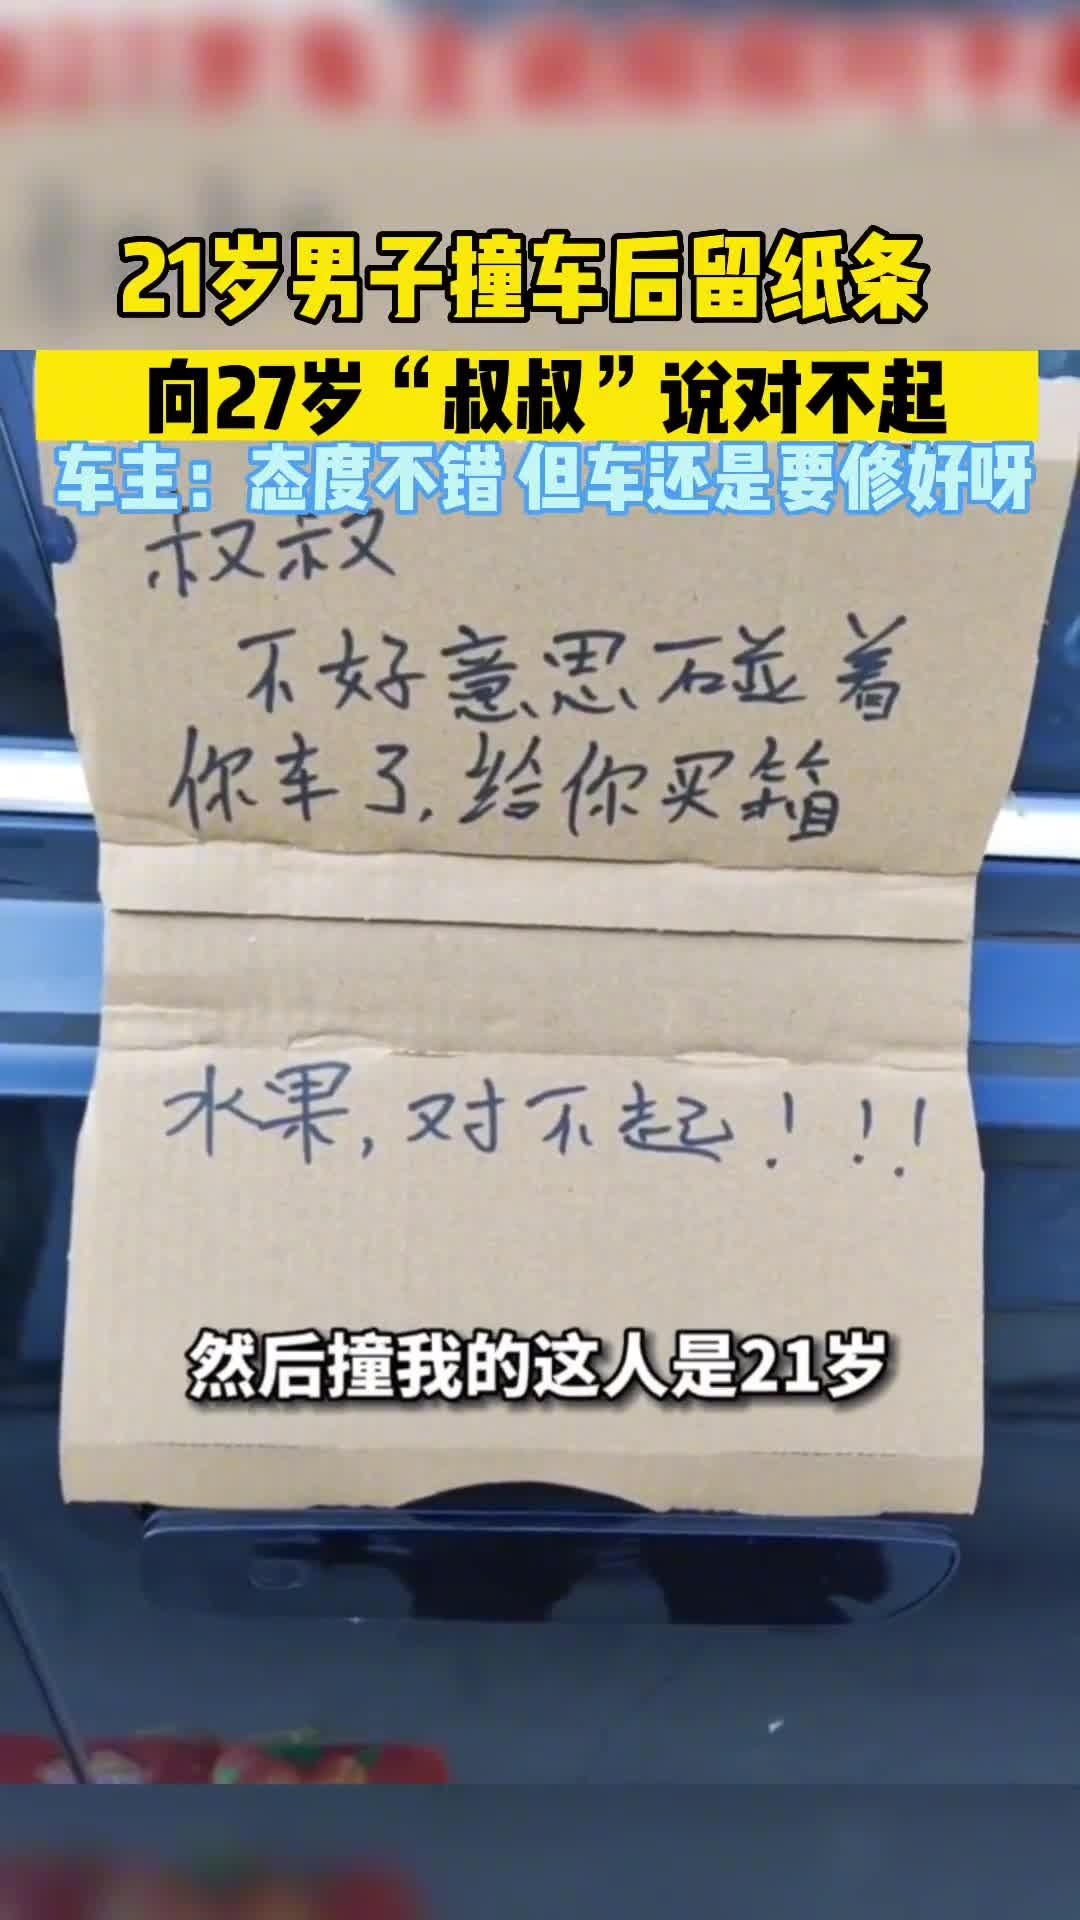 21岁男子撞车后留纸条
向27岁“叔叔”说对不起
车主：态度不错 但车还是要修好呀
叔叔
不好意思碰着
你车了，给你买箱
水果，对不起！！！
然后撞我的这人是21岁